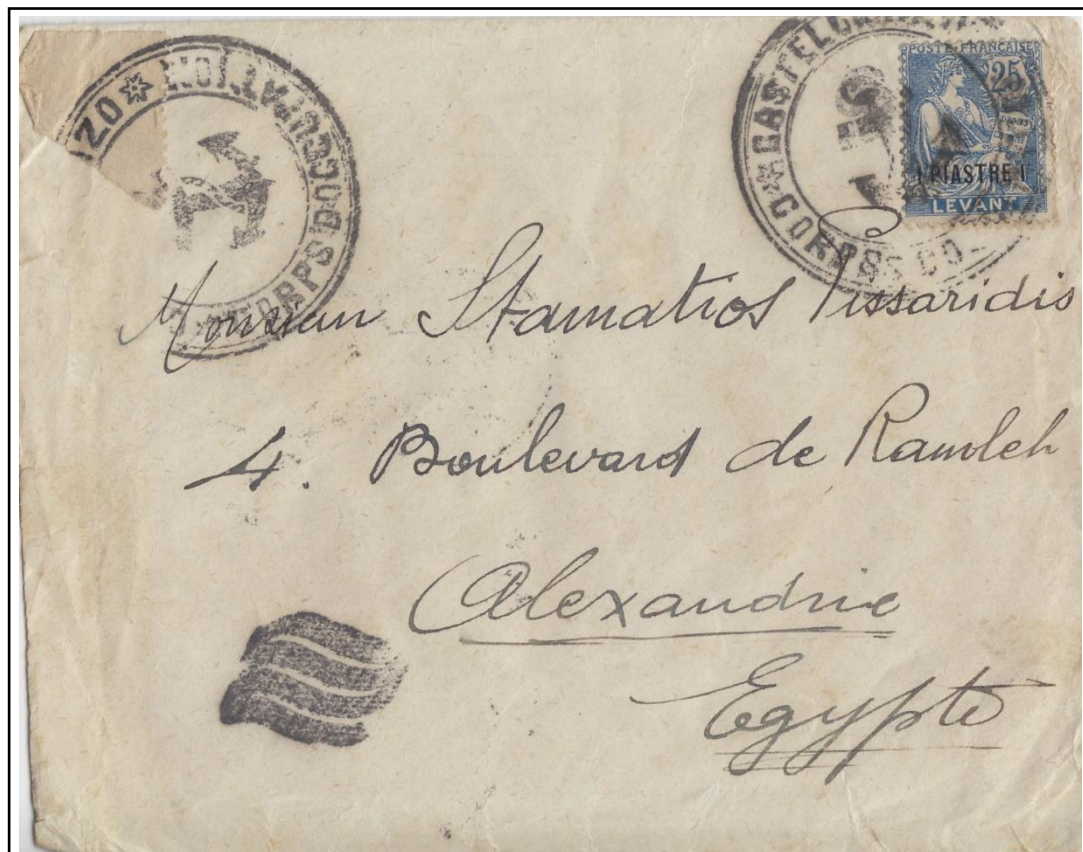 IZO * CORPS D'OCCUPATION *
* CASTELORIZO * CORPS D'OC
POSTE FRANÇAISE
25
1 PIASTRE 1
LEVANT
Monsieur Stamatios Pissaridis
4. Boulevard de Ramleh
Alexandrie
Egypte